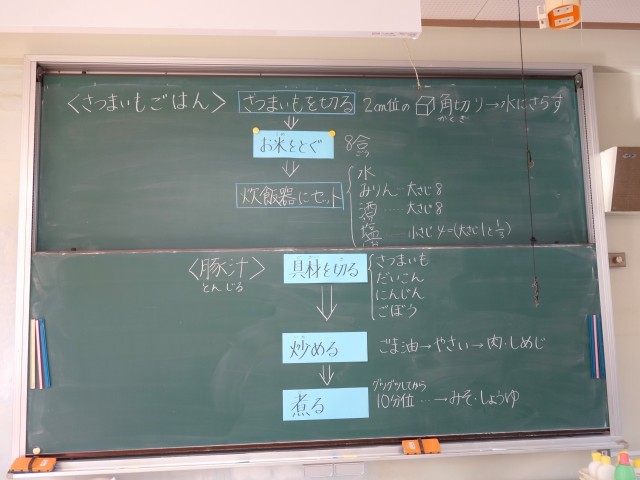 〈さつまいもごはん〉 さつまいもを切る 2cm位の 角切り→水にさらす
かくぎ
お米をとぐ 8合
炊飯器にセット
水
みりん‥大さじ8
酒 ‥‥ 大さじ8
塩 小さじ4=(大さじ1と1/3)
〈豚汁〉 具材を切る
とん じる
さつまいも
だいこん
にんじん
ごぼう
炒める ごま油→やさい→肉・しめじ
グツグツしてから
煮る 10分位 …→みそ・しょうゆ